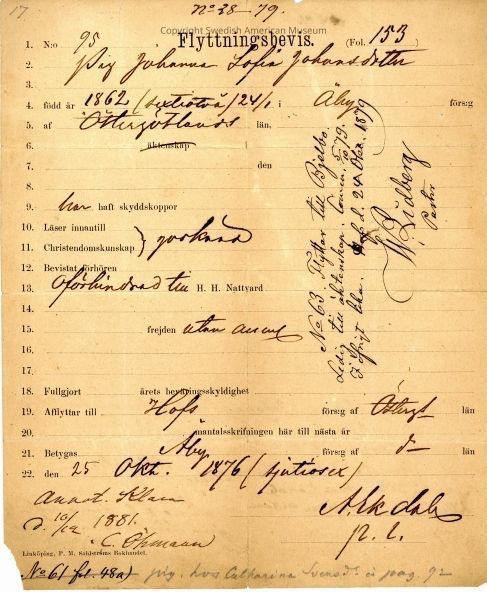 17
No 38 - 79.
Copyright Swedish American Museum
Flyttningsbevis.
1. N:o 95 (Fol. 153
2. pig Johanna Sofia Johansdotter
3.
4. född år 1862 (sextiotvå) 24/1 i Åby förs:g
5. af Östergötlands län,
6. äktenskap
7. den
8.
9. har haft skyddskoppor
10. Läser innantill
11. Christendomskunskap } godkänd
12. Bevistat förhören
13. Oförhindrad till H. H. Nattvard
14.
15. frejden utan anm
16.
17.
18. Fullgjort årets beväringsskyldighet
19. Afflyttar till Hofs förs:g af Östergt län
20. mantalsskrifningen här till nästa år
21. Betygas Åby förs:g af d- län
22. den 25 Okt. 1876 (sjutiosex)
No 63 Flyttar till Bjelbo.
Ledig till äktenskap.
I öfrigt lika. Hof d. 24 Okt. 1879
W. Lidberg
Pastor
Ekdahl
p. l.
Annot.
d. 10/12 1881.
C. Öhmann
Linköping, P. M. Sahlströms Bokhandel.
No 61 fol. 48a) pig. hos Catharina Svensd. pag. 92